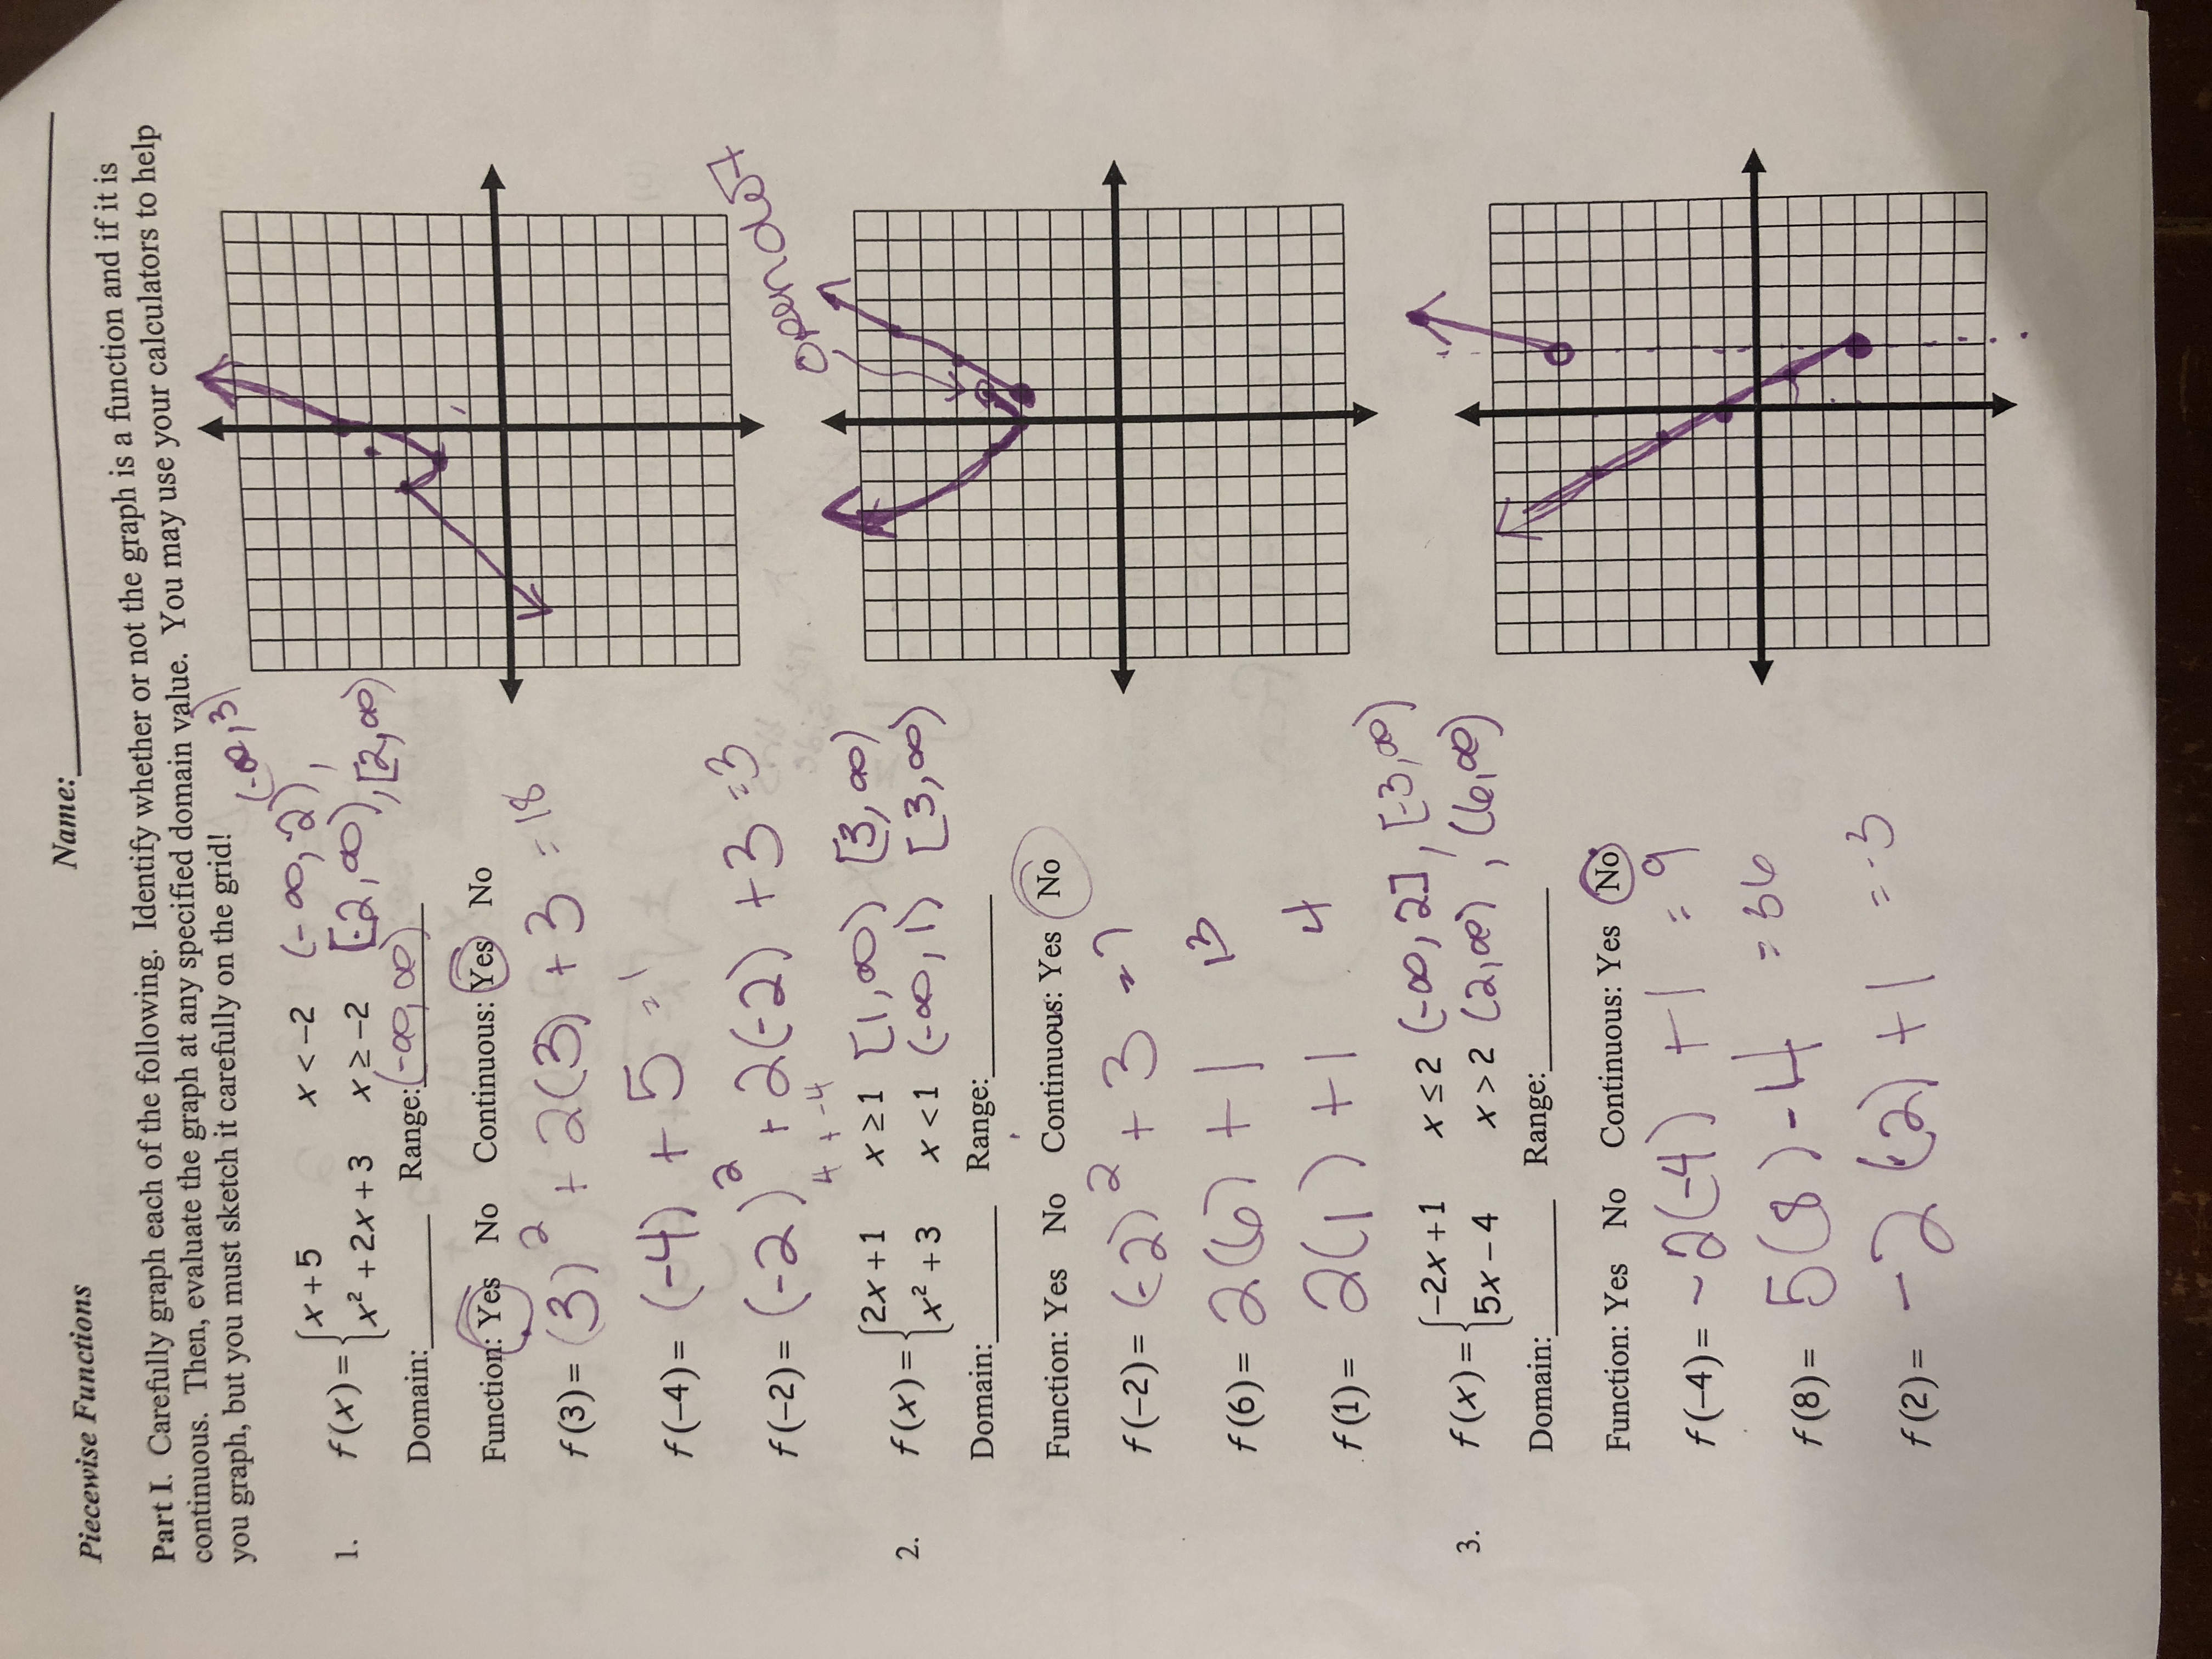 Piecewise Functions Name:
Part I. Carefully graph each of the following. Identify whether or not the graph is a function and if it is
continuous. Then, evaluate the graph at any specified domain value. You may use your calculators to help
you graph, but you must sketch it carefully on the grid!
(-∞,3)
1. f(x) = { x + 5 x < -2 (-∞,-2),
x² + 2x + 3 x ≥ -2 [-2,∞),[2,∞)
Domain: Range: (-∞,∞)
Function: Yes No Continuous: Yes No
f(3) = (3)² + 2(3) + 3 = 18
f(-4) = (-4) + 5 = 1
f(-2) = (-2)² + 2(-2) + 3 = 3
4 + -4
open dot
2. f(x) = { 2x + 1 x ≥ 1 [1,∞) [3,∞)
x² + 3 x < 1 (-∞,1) [3,∞)
Domain: Range:
Function: Yes No Continuous: Yes No
f(-2) = (-2)² + 3 = 7
f(6) = 2(6) + 1 13
f(1) = 2(1) + 1 4
3. f(x) = { -2x + 1 x ≤ 2 (-∞,2], [-3,∞)
5x - 4 x > 2 (2,∞), (6,∞)
Domain: Range:
Function: Yes No Continuous: Yes No
f(-4) = -2(-4) + 1 = 9
f(8) = 5(8) - 4 = 36
f(2) = -2(2) + 1 = -3